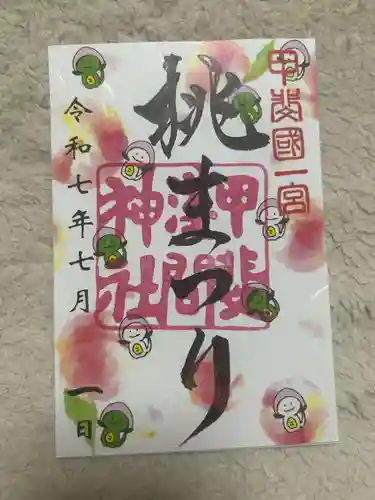 甲斐國一宮
桃まつり
甲斐国
浅間
神社
令和七年七月一日